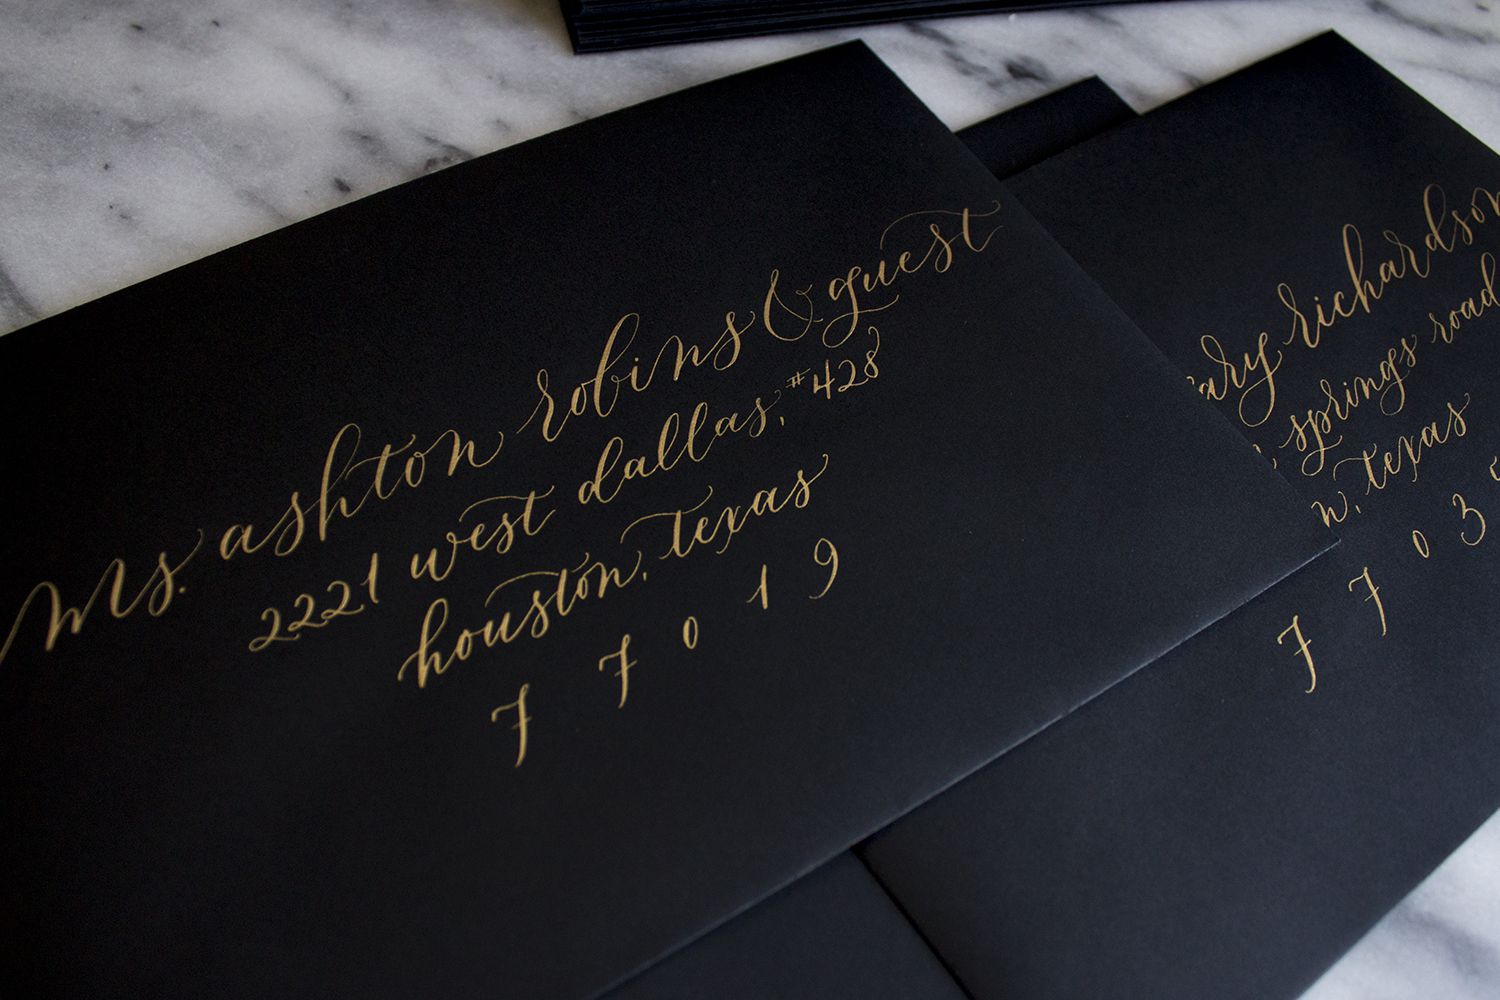 ms. ashton robins & guest
2221 west dallas, #428
houston, texas
77019
richardson
springs road
texas
7703